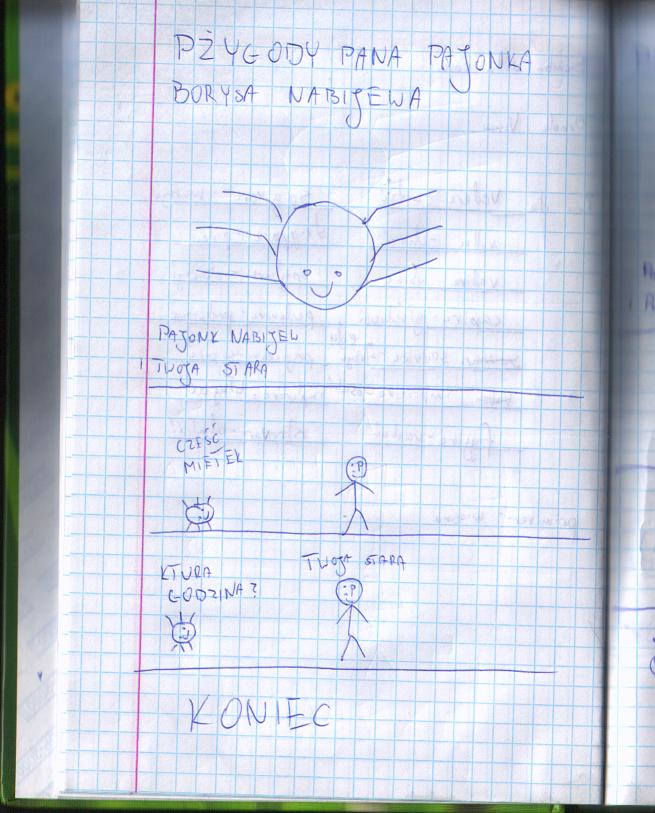 PŻYGODY PANA PAJONKA
BORYSA NABIJEWA
PAJONK NABIJEW
I TWOJA STARA
CZEŚĆ
MIETEK
KTURA
GODZINA?
TWOJA STARA
KONIEC